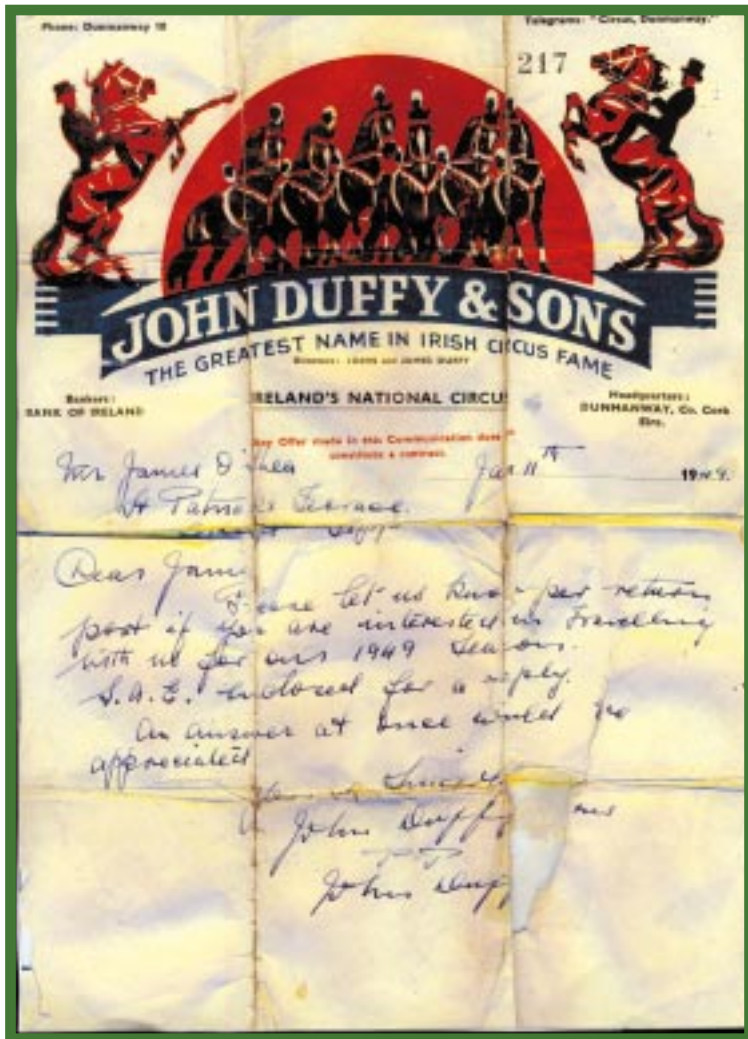 Phone: Dunmanway 10
Telegrams: "Circus, Dunmanway."
217
JOHN DUFFY & SONS
THE GREATEST NAME IN IRISH CIRCUS FAME
JOHN and JAMES DUFFY
Bankers:
BANK OF IRELAND
IRELAND'S NATIONAL CIRCUS
Headquarters:
DUNMANWAY, Co. Cork
Eire.
Any Offer made in this Communication does
constitute a contract.
Mr James O'Shea
Jan 11th 1949.
St Patrick's Terrace.
Dear James
Please let us know per return
post if you are interested in Travelling
with us for our 1949 Season.
S.A.E. enclosed for a reply.
An answer at once would be
appreciated
John Duffy
John Duffy